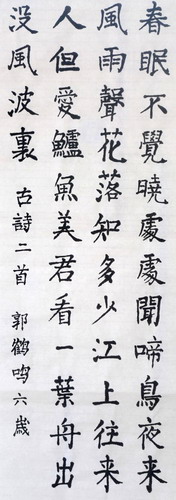 春眠不覺曉處處聞啼鳥夜来
風雨聲花落知多少江上往来
人但愛鱸魚美君看一葉舟出
没風波裏
古詩二首 郭鶴鸣六歲